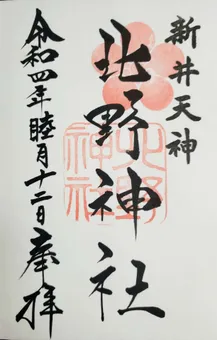 新井天神
北野神社
北野
神社
令和四年睦月十二日奉拝